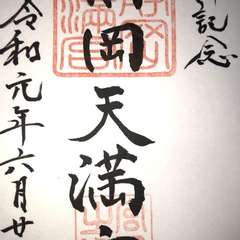 記念
岡天満宮
令和元年六月廿